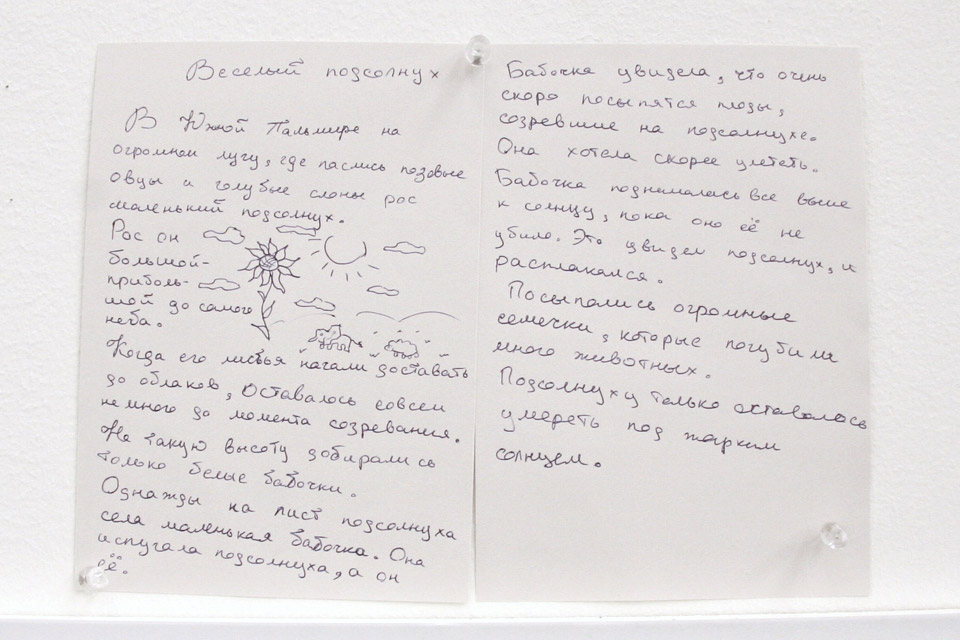 Веселый подсолнух
В Южной Пальмире на
огромном лугу, где паслись розовые
овцы и голубые слоны рос
маленький подсолнух.
Рос он
большой-
приболь-
шой до самого
неба.
Когда его листья начали доставать
до облаков, оставалось совсем
немного до момента созревания.
На такую высоту добирались
только белые бабочки.
Однажды на лист подсолнуха
села маленькая бабочка. Она
испугала подсолнуха, а он
её.
Бабочка увидела, что очень
скоро посыпятся плоды,
созревшие на подсолнухе.
Она хотела скорее улететь.
Бабочка поднималась все выше
к солнцу, пока оно её не
убило. Это увидел подсолнух, и
расплакался.
Посыпались огромные
семечки, которые погубили
много животных.
Подсолнуху только оставалось
умереть под жарким
солнцем.